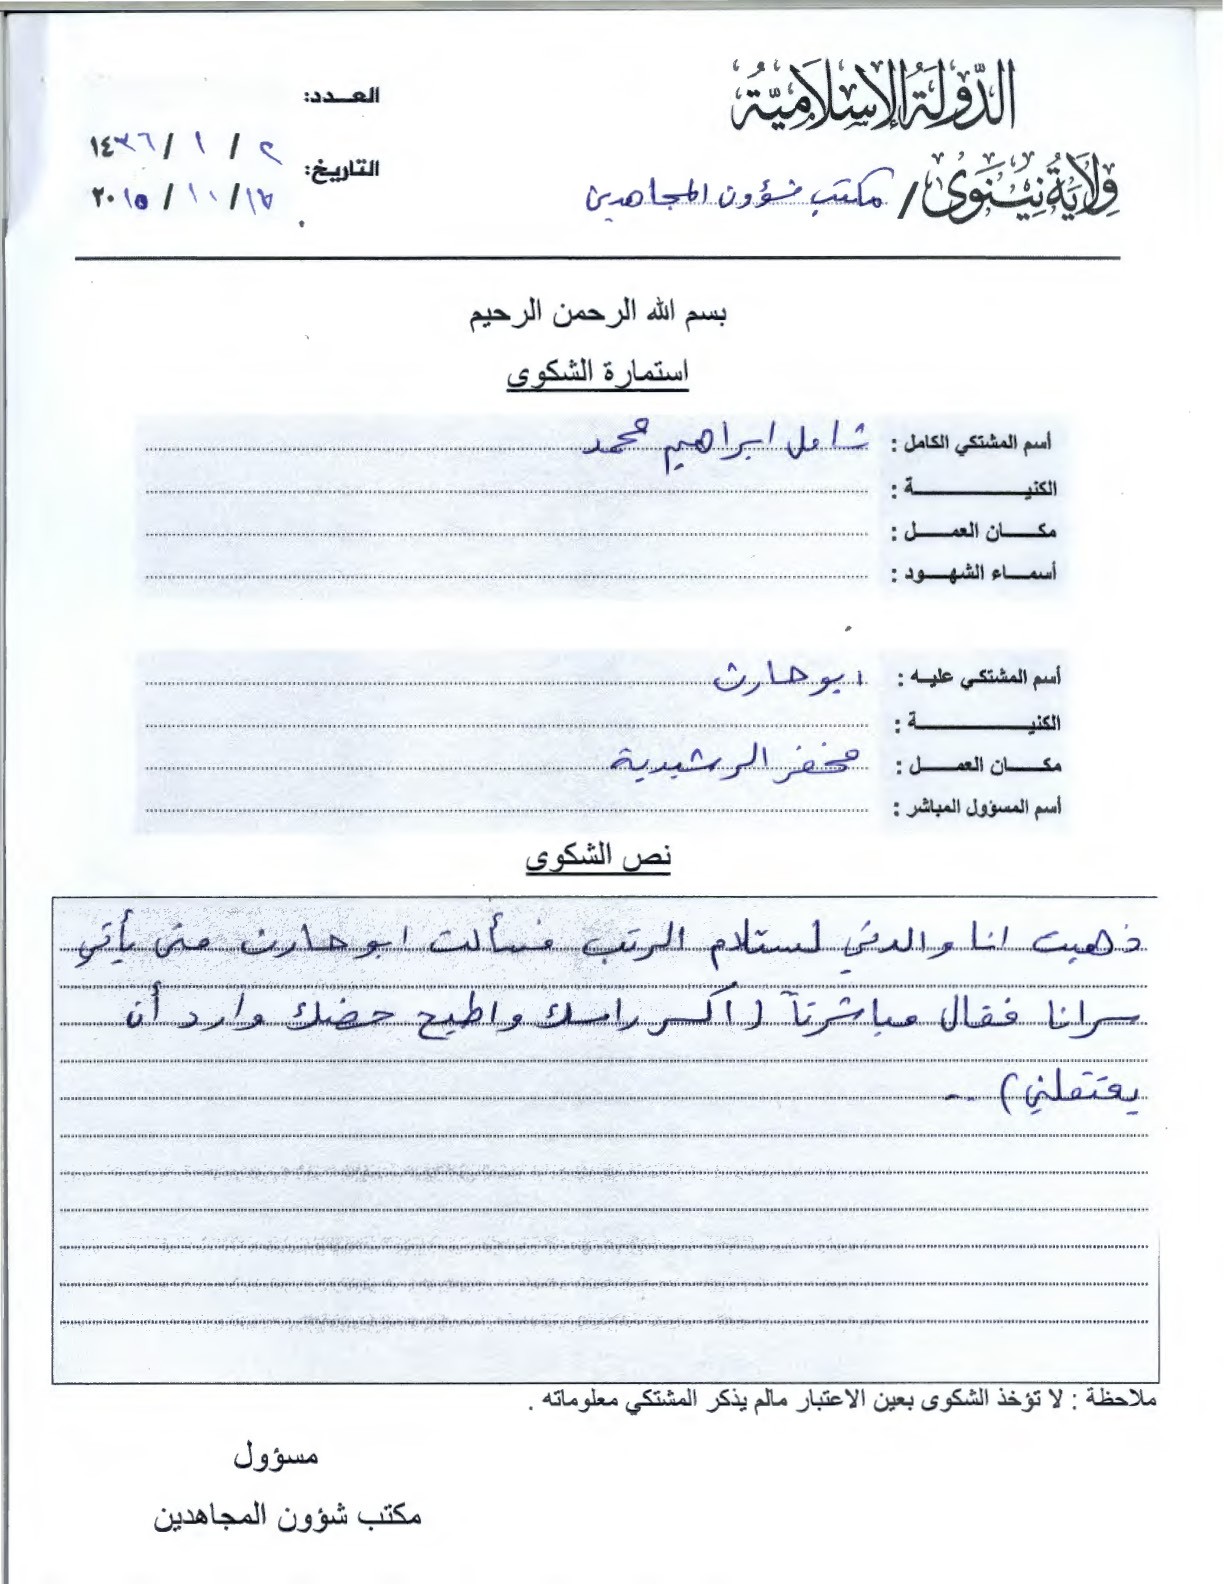 الدولة الإسلامية
ولاية نينوى / مكتب شؤون المجاهدين
العـــدد:
التاريخ: ٢ / ١ / ١٤٣٦
١٥ / ١٠ / ٢٠١٥
بسم الله الرحمن الرحيم
استمارة الشكوى
أسم المشتكي الكامل : شامل ابراهيم محمد
الكنيــــــــــــة :
مكـــان العمـــل :
أسمـــاء الشهـــود :
أسم المشتكي عليه : ابو حارث
الكنيــــــــــــة :
مكـــان العمـــل : مخفر الرشيدية
أسم المسؤول المباشر :
نص الشكوى
ذهبت انا والدتي لستلام الرتب فسألت ابو حارث متى يأتي
سرانا فقال مباشرتاً ( اكسر راسك واطيح حضك وارد أن
يعتقلني ) ..
ملاحظة : لا تؤخذ الشكوى بعين الاعتبار مالم يذكر المشتكي معلوماته .
مسؤول
مكتب شؤون المجاهدين